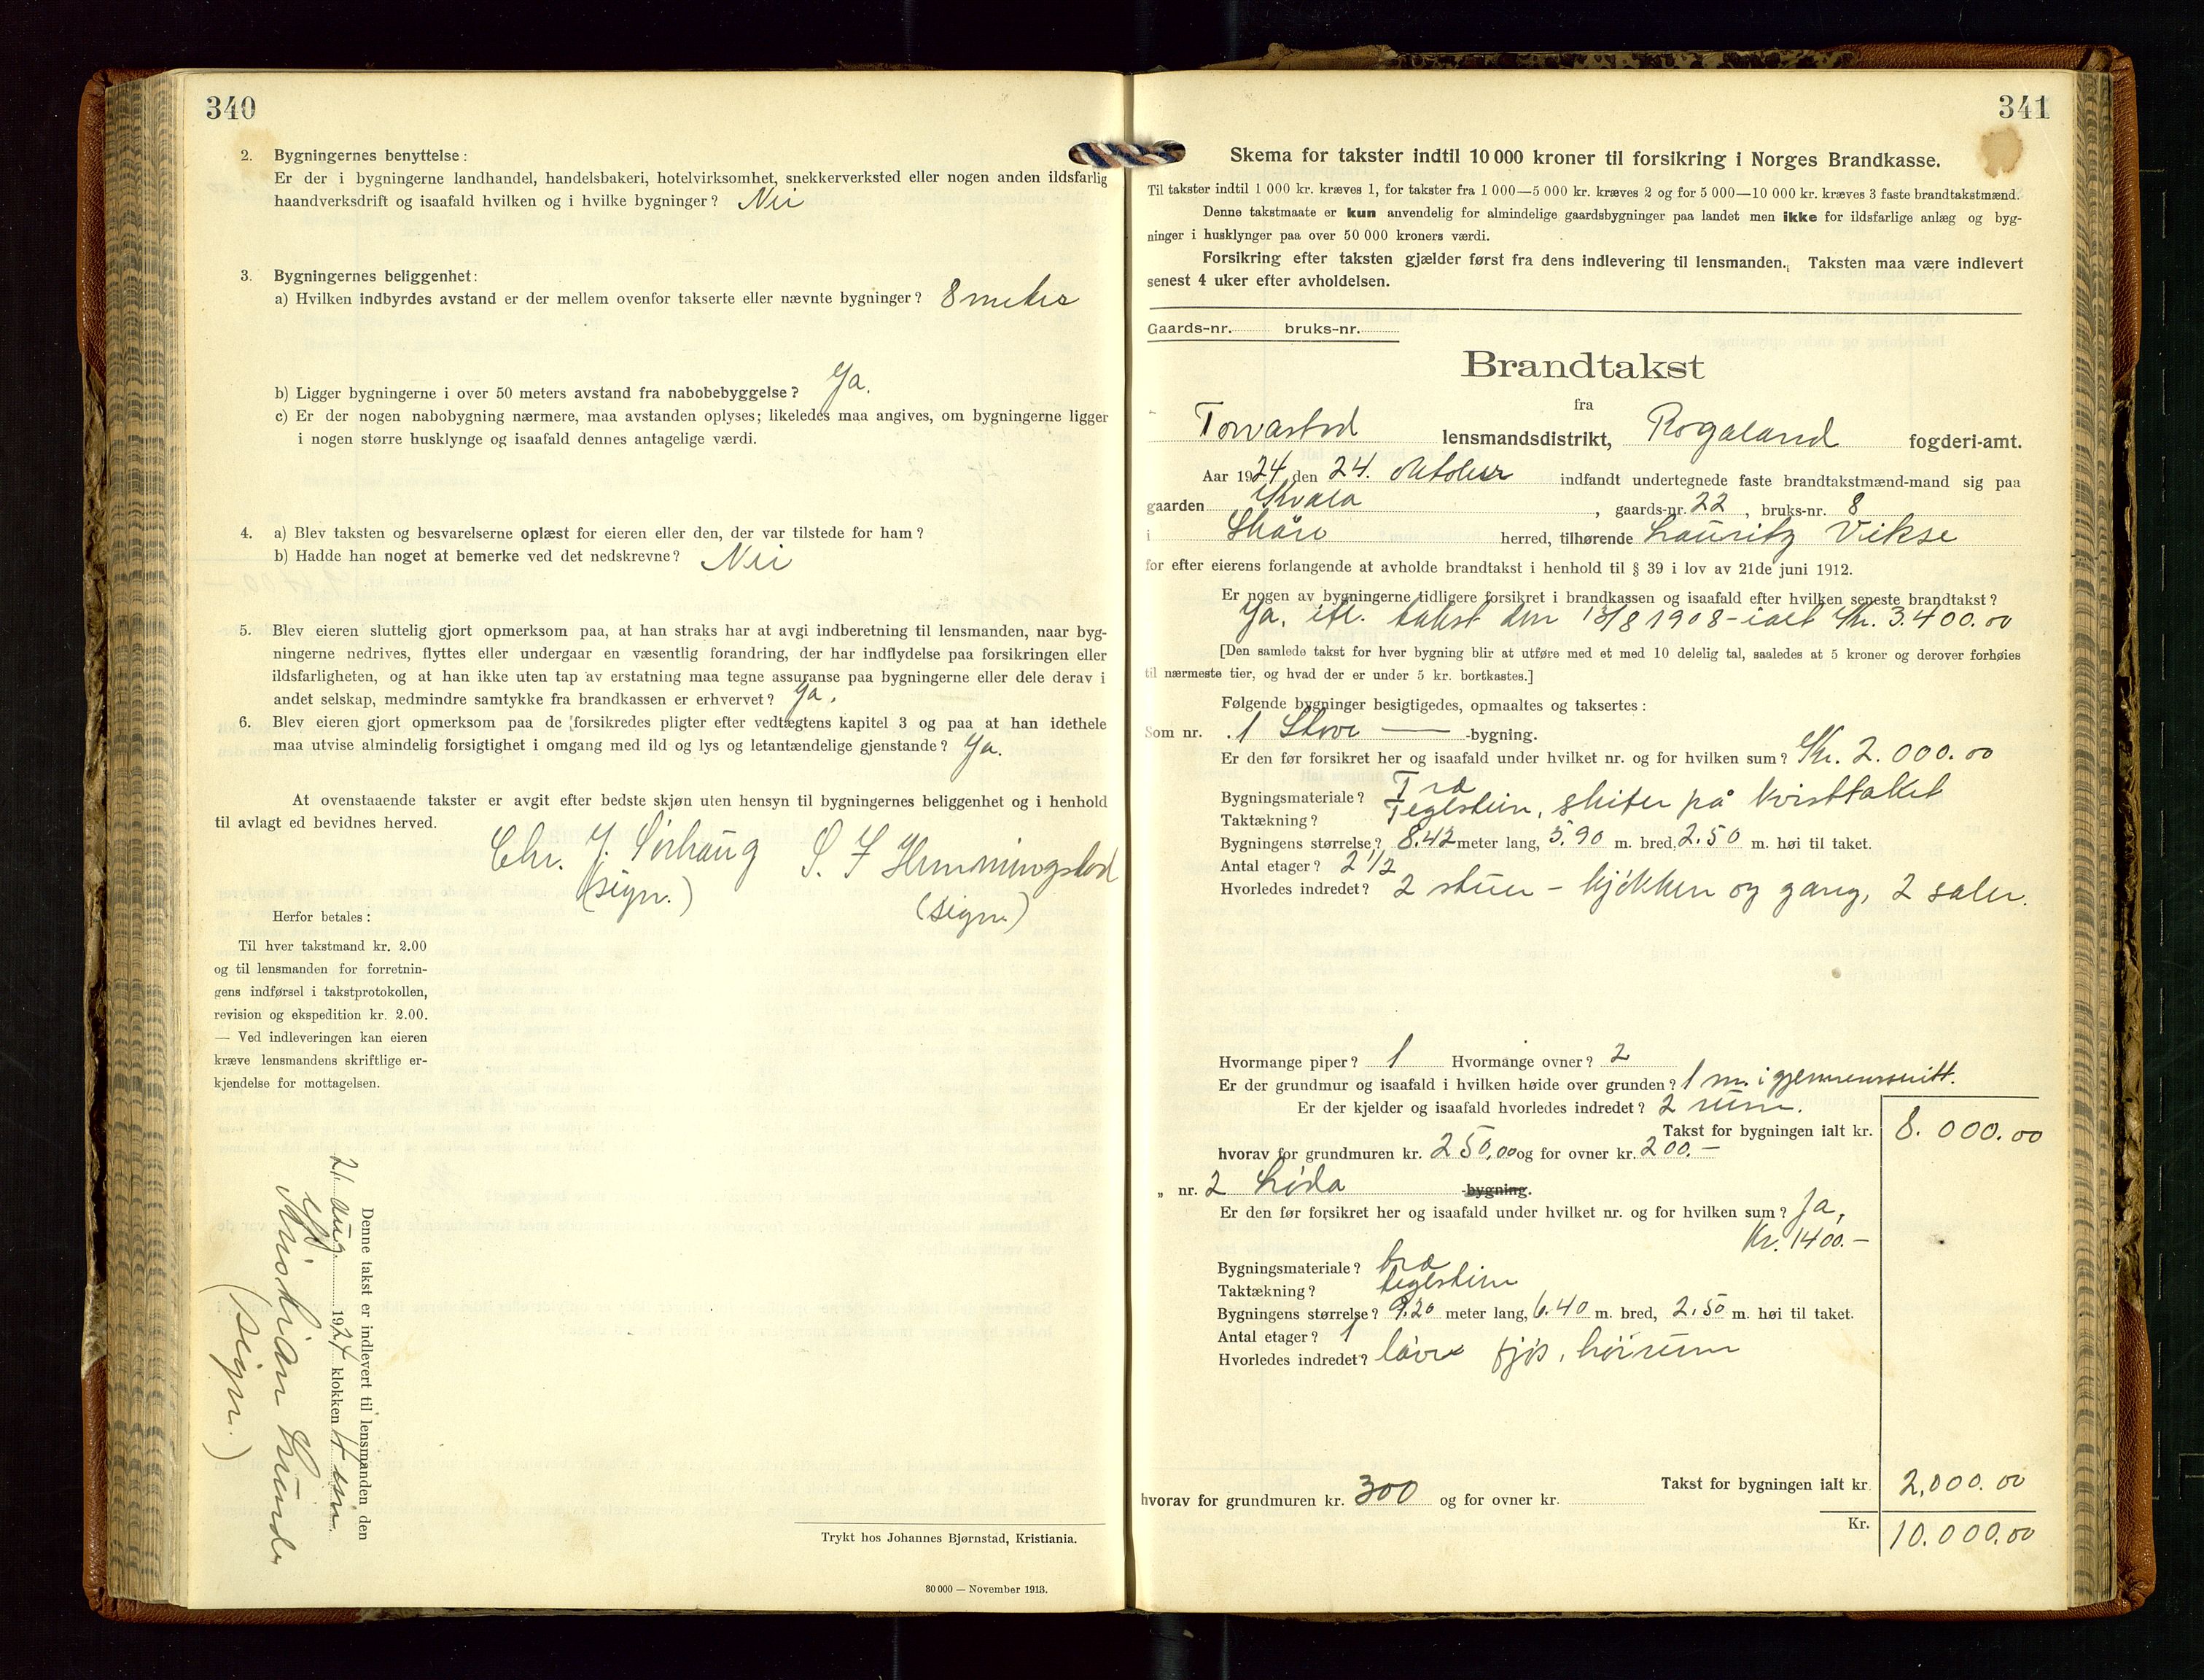 340
2. Bygningernes benyttelse:
Er der i bygningerne landhandel, handelsbakeri, hotelvirksomhet, snekkerverksted eller nogen anden ildsfarlig
haandverksdrift og isaafald hvilken og i hvilke bygninger? Nei
3. Bygningernes beliggenhet:
a) Hvilken indbyrdes avstand er der mellem ovenfor takserte eller nævnte bygninger? 8 meter
b) Ligger bygningerne i over 50 meters avstand fra nabobebyggelse? Ja.
c) Er der nogen nabobygning nærmere, maa avstanden oplyses; likeledes maa angives, om bygningerne ligger
i nogen større husklynge og isaafald dennes antagelige værdi.
4. a) Blev taksten og besvarelserne oplæst for eieren eller den, der var tilstede for ham?
b) Hadde han noget at bemerke ved det nedskrevne? Nei
5. Blev eieren sluttelig gjort opmerksom paa, at han straks har at avgi indberetning til lensmanden, naar byg-
ningerne nedrives, flyttes eller undergaar en væsentlig forandring, der har indflydelse paa forsikringen eller
ildsfarligheten, og at han ikke uten tap av erstatning maa tegne assuranse paa bygningerne eller dele derav i
andet selskap, medmindre samtykke fra brandkassen er erhvervet? Ja.
6. Blev eieren gjort opmerksom paa de forsikredes pligter efter vedtægtens kapitel 3 og paa at han idethele
maa utvise almindelig forsigtighet i omgang med ild og lys og letantændelige gjenstande? Ja.
At ovenstaaende takster er avgit efter bedste skjøn uten hensyn til bygningernes beliggenhet og i henhold
til avlagt ed bevidnes herved.
Chr. J. Sørhaug S. F Hemmingstad
(sign.) (sign.)
Herfor betales:
Til hver takstmand kr. 2.00
og til lensmanden for forretnin-
gens indførsel i takstprotokollen,
revision og ekspedition kr. 2.00.
— Ved indleveringen kan eieren
kræve lensmandens skriftlige er-
kjendelse for mottagelsen.
Denne takst er indlevert til lensmanden den
21. aug. 1924 klokken 4 em.
eft.
Kristian Lunde
(sign.)
Trykt hos Johannes Bjørnstad, Kristiania.
30 000 — November 1913.
341
Skema for takster indtil 10 000 kroner til forsikring i Norges Brandkasse.
Til takster indtil 1 000 kr. kræves 1, for takster fra 1 000—5 000 kr. kræves 2 og for 5 000—10 000 kr. kræves 3 faste brandtakstmænd.
Denne takstmaate er kun anvendelig for almindelige gaardsbygninger paa landet men ikke for ildsfarlige anlæg og byg-
ninger i husklynger paa over 50 000 kroners værdi.
Forsikring efter taksten gjælder først fra dens indlevering til lensmanden. Taksten maa være indlevert
senest 4 uker efter avholdelsen.
Gaards-nr. bruks-nr.
Brandtakst
fra
Torvastad lensmandsdistrikt, Rogaland fogderi-amt.
Aar 1924 den 24. oktober indfandt undertegnede faste brandtakstmænd-mand sig paa
gaarden Kvala, gaards-nr. 22, bruks-nr. 8
i Skåre herred, tilhørende Lauritz Vikse
for efter eierens forlangende at avholde brandtakst i henhold til § 39 i lov av 21de juni 1912.
Er nogen av bygningerne tidligere forsikret i brandkassen og isaafald efter hvilken seneste brandtakst?
Ja, eft. takst den 13/8 1908 - ialt Kr. 3.400.00
[Den samlede takst for hver bygning blir at utføre med et med 10 delelig tal, saaledes at 5 kroner og derover forhøies
til nærmeste tier, og hvad der er under 5 kr. bortkastes.]
Følgende bygninger besigtigedes, opmaaltes og taksertes:
Som nr. 1 Stove — -bygning.
Er den før forsikret her og isaafald under hvilket nr. og for hvilken sum? Kr. 2.000.00
Bygningsmateriale? Træ
Taktækning? Teglstein, skifer på kvisttaket
Bygningens størrelse? 8.42 meter lang, 5.90 m. bred, 2.50 m. høi til taket.
Antal etager? 2 1/2
Hvorledes indredet? 2 stuer - kjøkken og gang, 2 saler.
Hvormange piper? 1 Hvormange ovner? 2
Er der grundmur og isaafald i hvilken høide over grunden? 1 m. i gjennemsnitt.
Er der kjelder og isaafald hvorledes indredet? 2 rum.
Takst for bygningen ialt kr. 8.000.00
hvorav for grundmuren kr. 250,00 og for ovner kr. 200.-
„ nr. 2 Løda -bygning.
Er den før forsikret her og isaafald under hvilket nr. og for hvilken sum? Ja,
Kr. 1400.-
Bygningsmateriale? træ
Taktækning? teglstein
Bygningens størrelse? 9.20 meter lang, 6.40 m. bred, 2.50 m. høi til taket.
Antal etager? 1
Hvorledes indredet? låve fjøs, høirum
Takst for bygningen ialt kr. 2,000.00
hvorav for grundmuren kr. 300 og for ovner kr.
Kr. 10.000.00